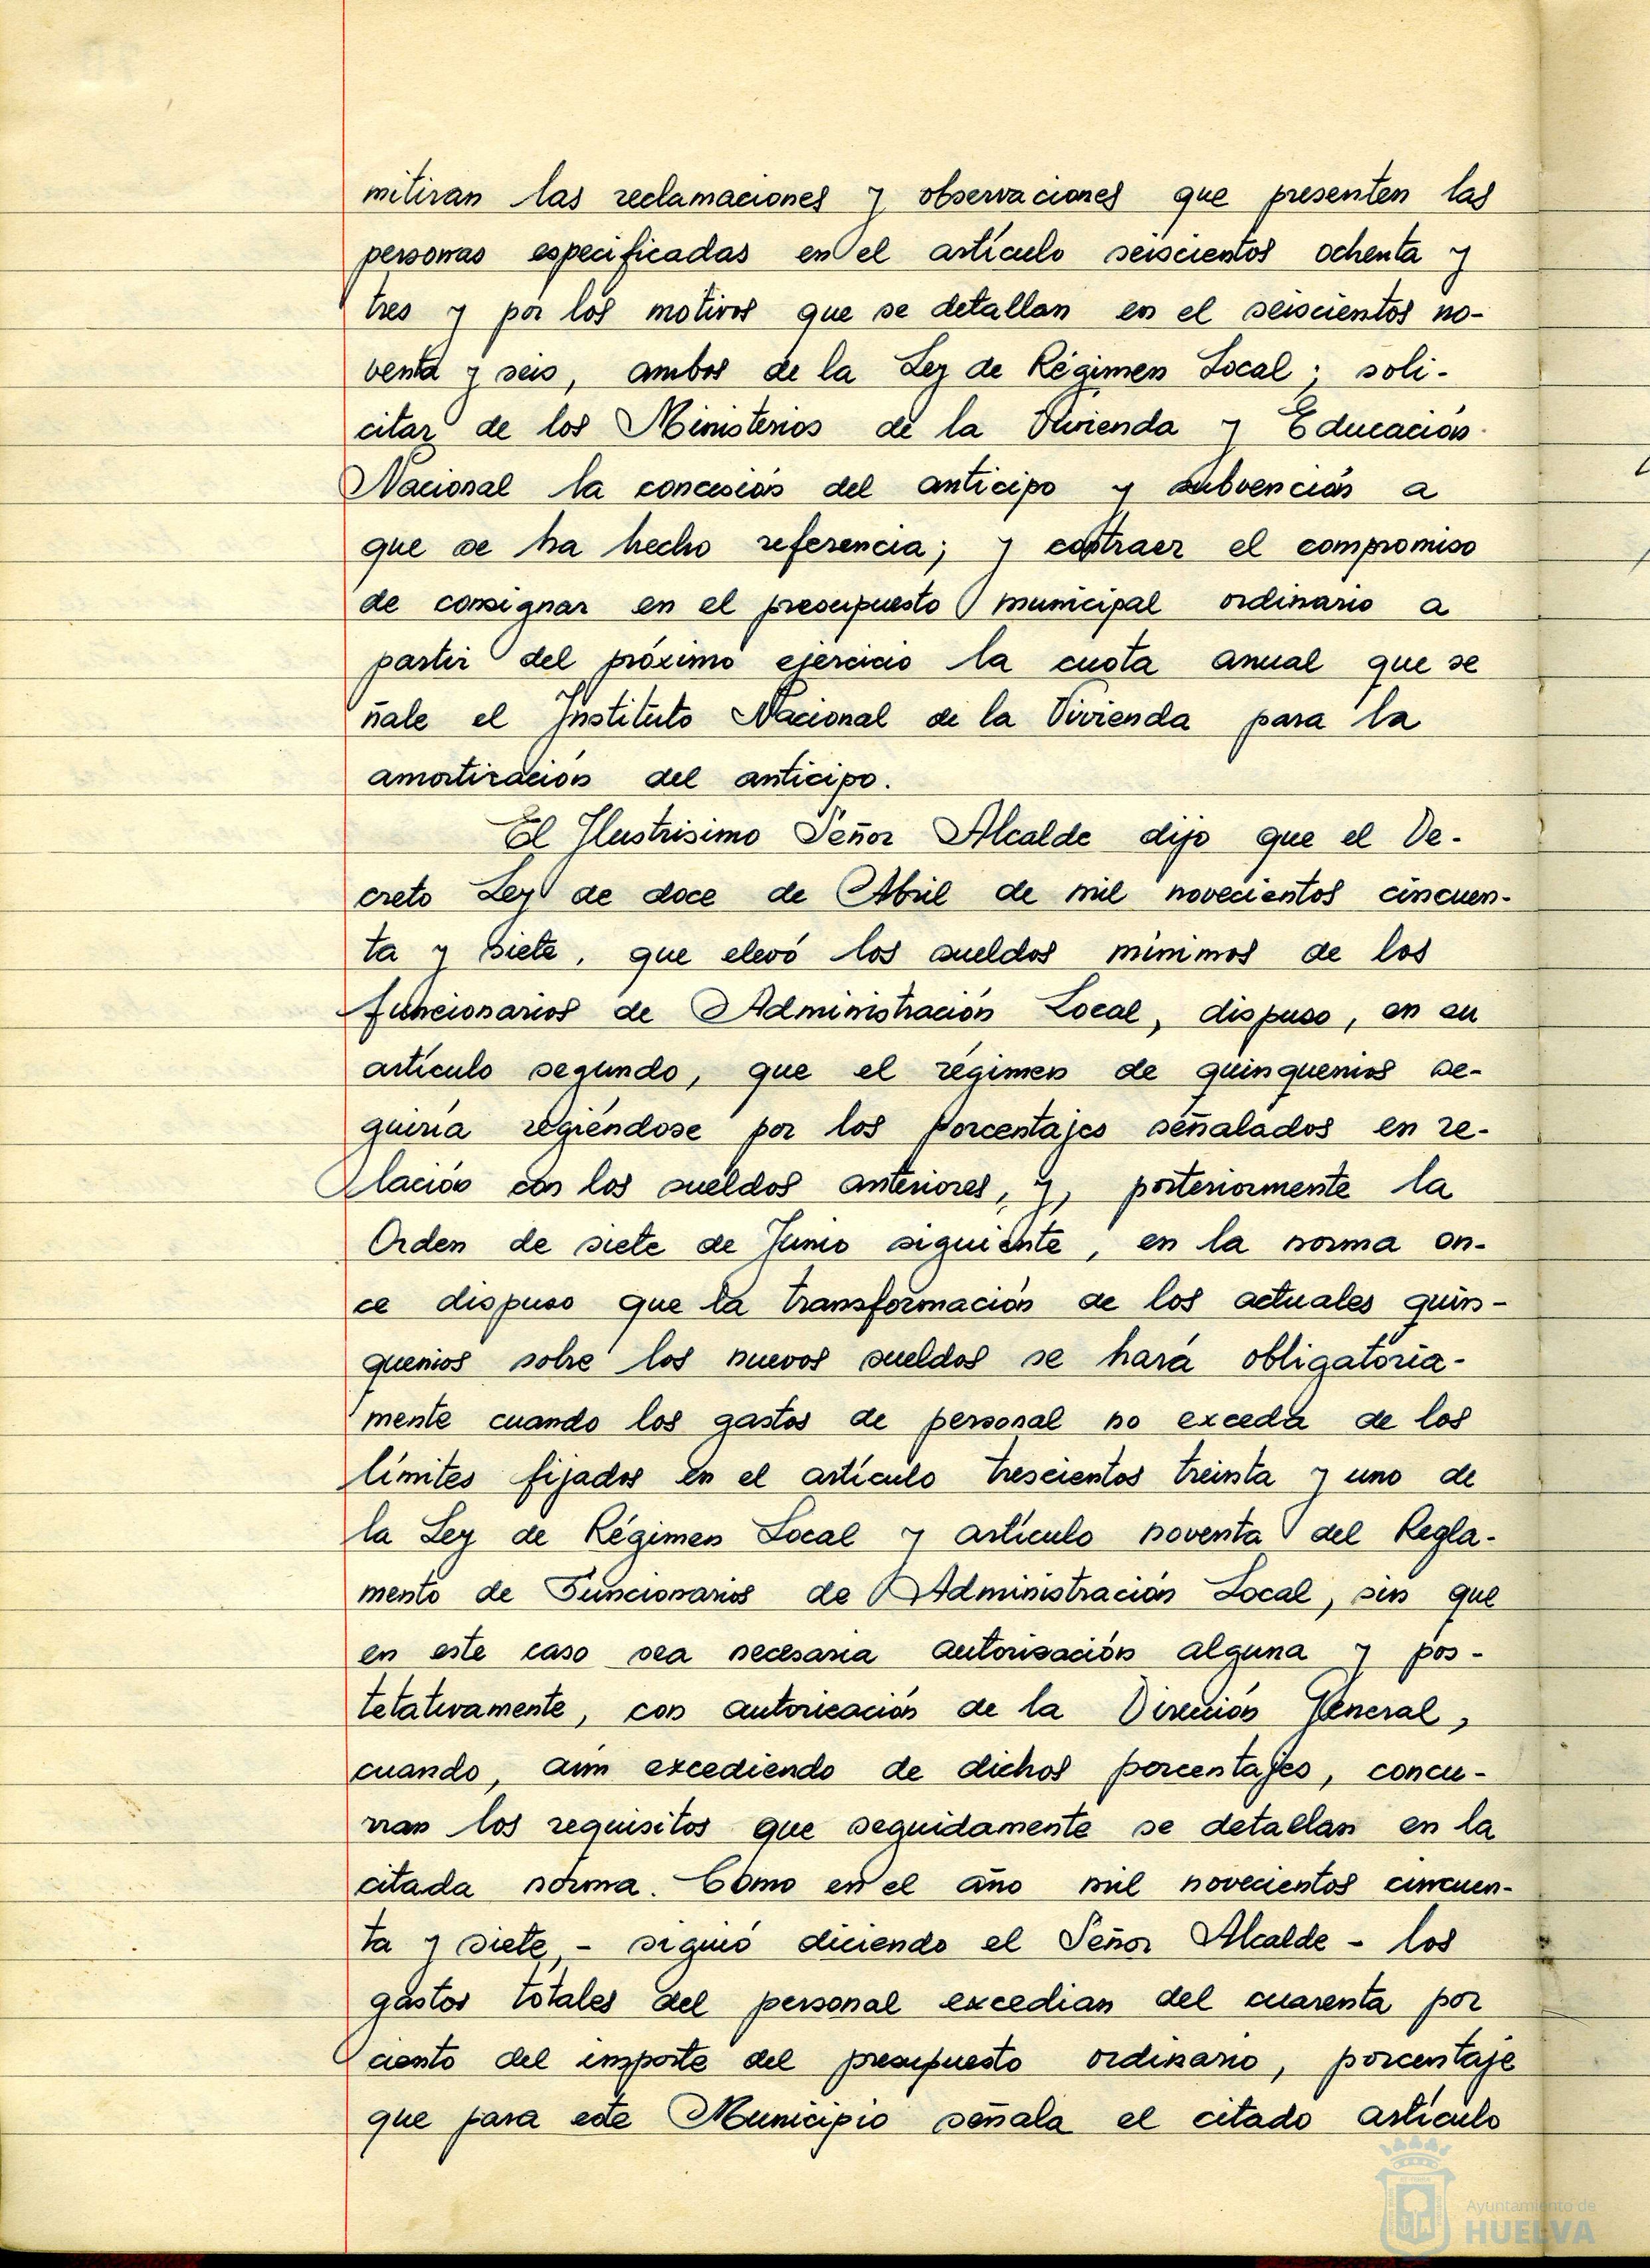 mitiran las reclamaciones y observaciones que presenten las
personas especificadas en el artículo seiscientos ochenta y
tres y por los motivos que se detallan en el seiscientos no-
venta y seis, ambos de la Ley de Régimen Local; soli-
citar de los Ministerios de la Vivienda y Educación
Nacional la concesión del anticipo y subvención a
que se ha hecho referencia; y contraer el compromiso
de consignar en el presupuesto municipal ordinario a
partir del próximo ejercicio la cuota anual que se
ñale el Instituto Nacional de la Vivienda para la
amortización del anticipo.
El Ilustrisimo Señor Alcalde dijo que el De-
creto Ley de doce de Abril de mil novecientos cincuen-
ta y siete, que elevó los sueldos mínimos de los
funcionarios de Administración Local, dispuso, en su
artículo segundo, que el régimen de quinquenios se-
guiría rigiéndose por los porcentajes señalados en re-
lación con los sueldos anteriores, y, posteriormente la
Orden de siete de Junio siguiente, en la norma on-
ce dispuso que la transformación de los actuales quin-
quenios sobre los nuevos sueldos se hará obligatoria-
mente cuando los gastos de personal no exceda de los
límites fijados en el artículo trescientos treinta y uno de
la Ley de Régimen Local y artículo noventa del Regla-
mento de Funcionarios de Administración Local, sin que
en este caso sea necesaria autorización alguna y pos-
tetativamente, con autorización de la Dirección General,
cuando, aún excediendo de dichos porcentajes, concu-
rran los requisitos que seguidamente se detallan en la
citada norma. Como en el año mil novecientos cincuen-
ta y siete, - siguió diciendo el Señor Alcalde - los
gastos totales del personal excedian del cuarenta por
ciento del importe del presupuesto ordinario, porcentaje
que para este Municipio señala el citado artículo
Ayuntamiento de
HUELVA